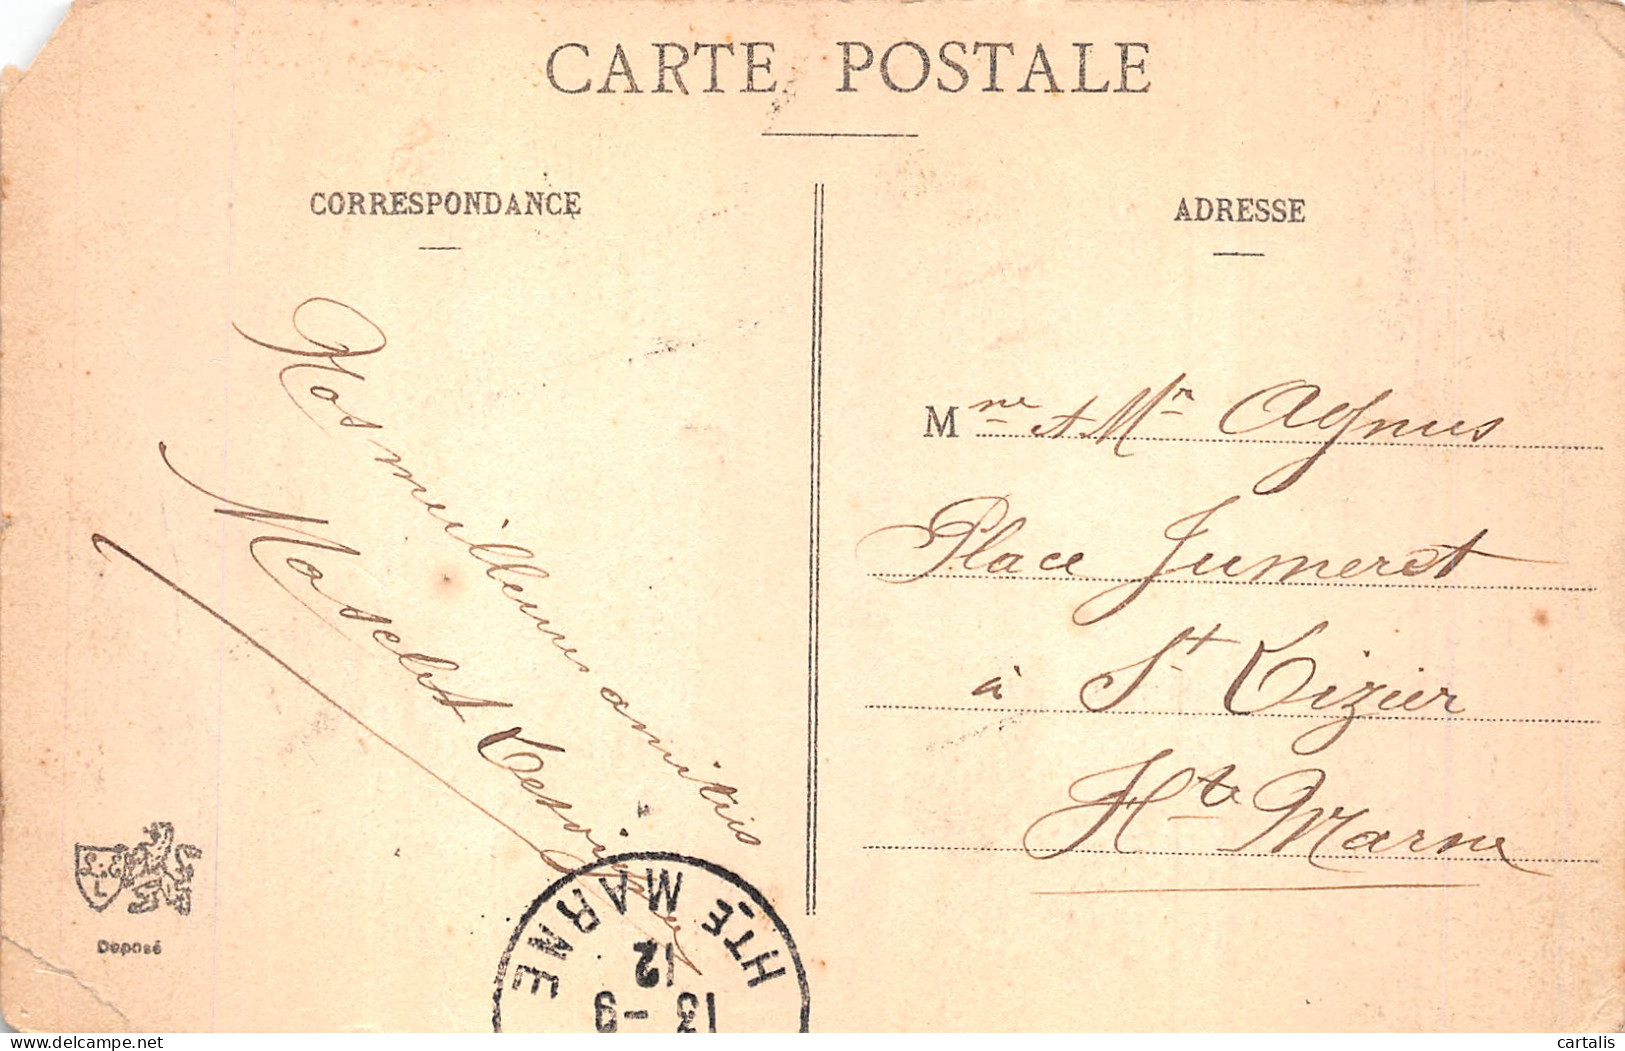 CARTE POSTALE
CORRESPONDANCE
Nos meilleures amitiés
Maselet
ADRESSE
Mme et Mr Agnus
Place Jumeret
à St Lizier
Hte Marne
HTE MARNE
13-9
12
Deposé
cartalis
www.delcampe.net